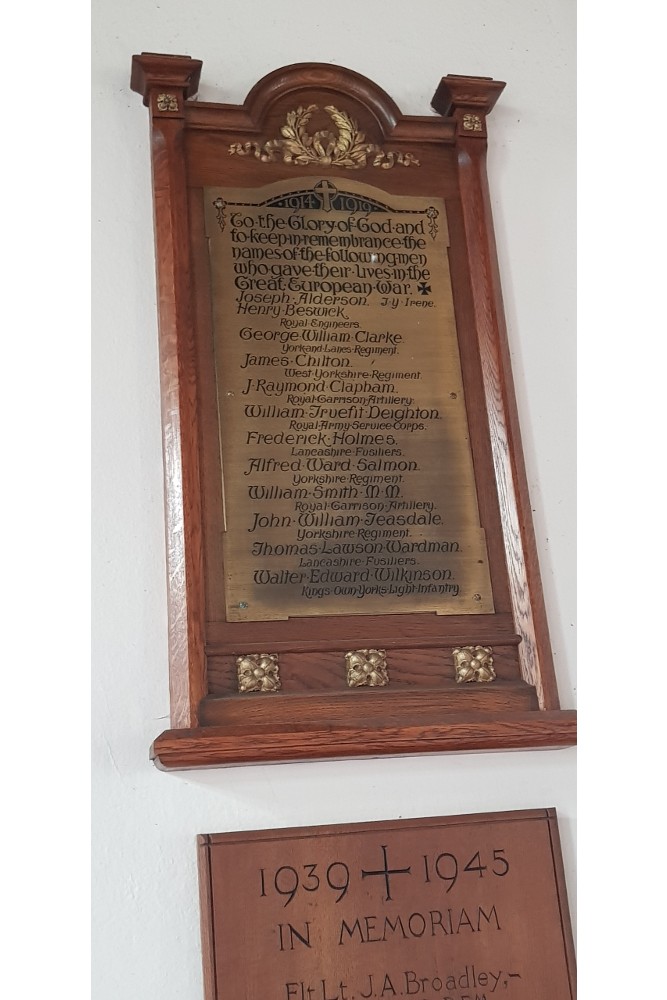 1914 1919
To·the·Glory·of·God·and
to·keep·in·remembrance·the
names·of·the·following·men
who·gave·their·Lives·in·the
Great·European·War.
Joseph·Alderson. I·Y·Irene.
Henry·Beswick.
Royal·Engineers.
George·William·Clarke.
York·and·Lancs·Regiment.
James·Chilton.
West·Yorkshire·Regiment.
J·Raymond·Clapham.
Royal·Garrison·Artillery.
William·Truefit·Deighton.
Royal·Army·Service·Corps.
Frederick·Holmes.
Lancashire·Fusiliers.
Alfred·Ward·Salmon.
Yorkshire·Regiment.
William·Smith·M·M.
Royal·Garrison·Artillery.
John·William·Teasdale.
Yorkshire·Regiment.
Thomas·Lawson·Wardman.
Lancashire·Fusiliers.
Walter·Edward·Wilkinson.
Kings·Own·Yorks·Light·Infantry.
1939 1945
IN MEMORIAM
Flt Lt. J.A. Broadley,-